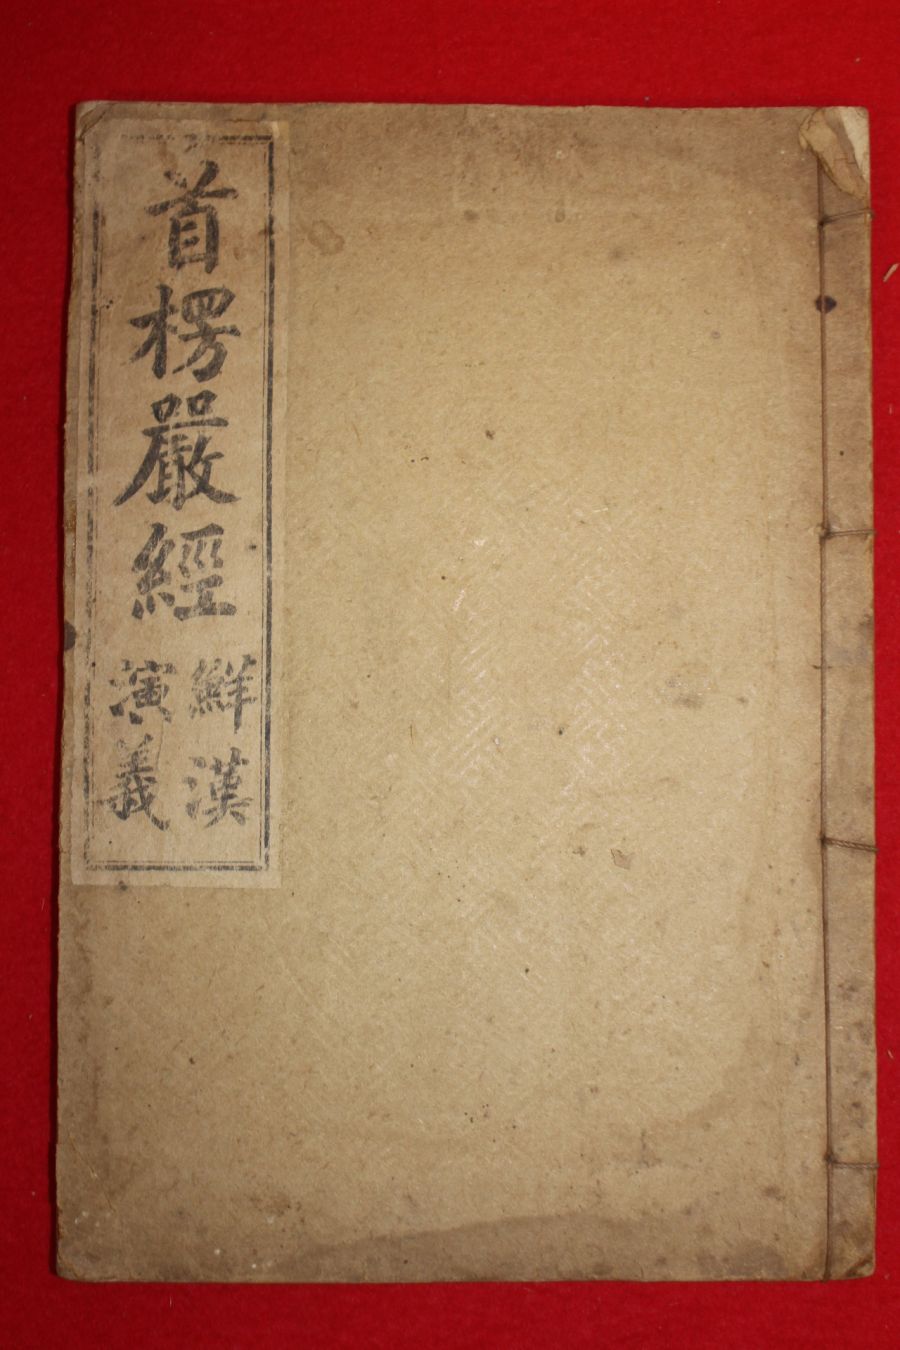 首楞嚴經
鮮漢
演義